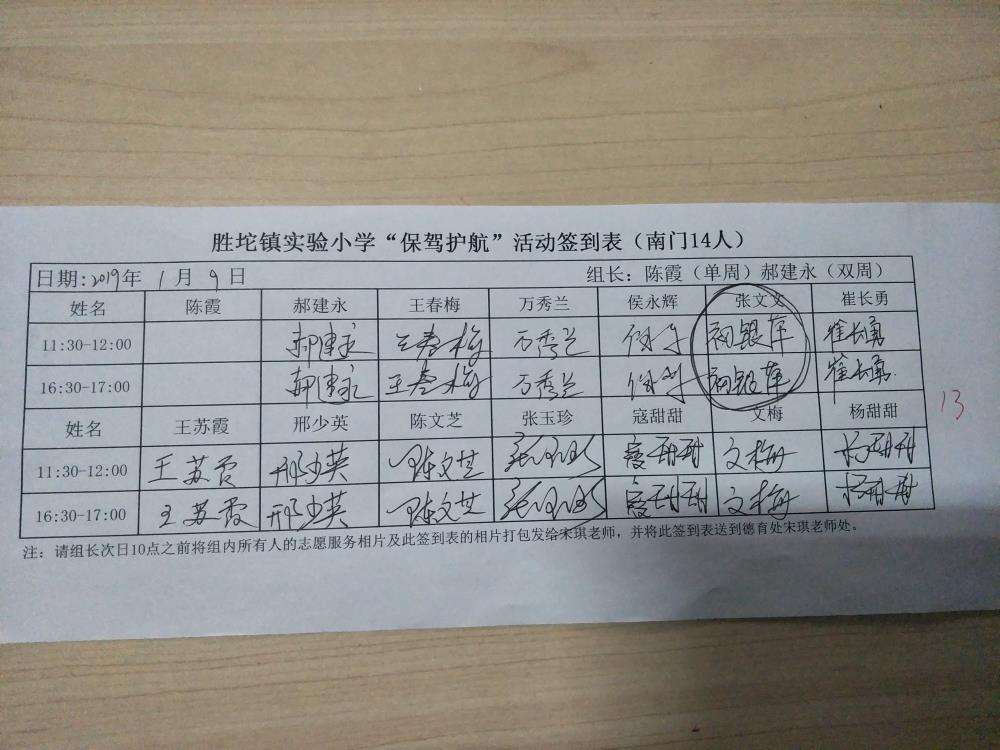 胜坨镇实验小学“保驾护航”活动签到表（南门14人）
日期:2019年 1月 9日 组长：陈霞（单周）郝建永（双周）
姓名 陈霞 郝建永 王春梅 万秀兰 侯永辉 张文文 崔长勇
11:30-12:00 郝建永 王春梅 万秀兰 银萍 崔长勇
16:30-17:00 郝建永 王春梅 万秀兰 银萍 崔长勇
13
姓名 王苏霞 邢少英 陈文芝 张玉珍 寇甜甜 文梅 杨甜甜
11:30-12:00 王苏霞 邢少英 陈文芝 张玉珍 寇甜甜 文梅 杨甜甜
16:30-17:00 王苏霞 邢少英 陈文芝 张玉珍 寇甜甜 文梅 杨甜甜
注：请组长次日10点之前将组内所有人的志愿服务相片及此签到表的相片打包发给宋琪老师，并将此签到表送到德育处宋琪老师处。